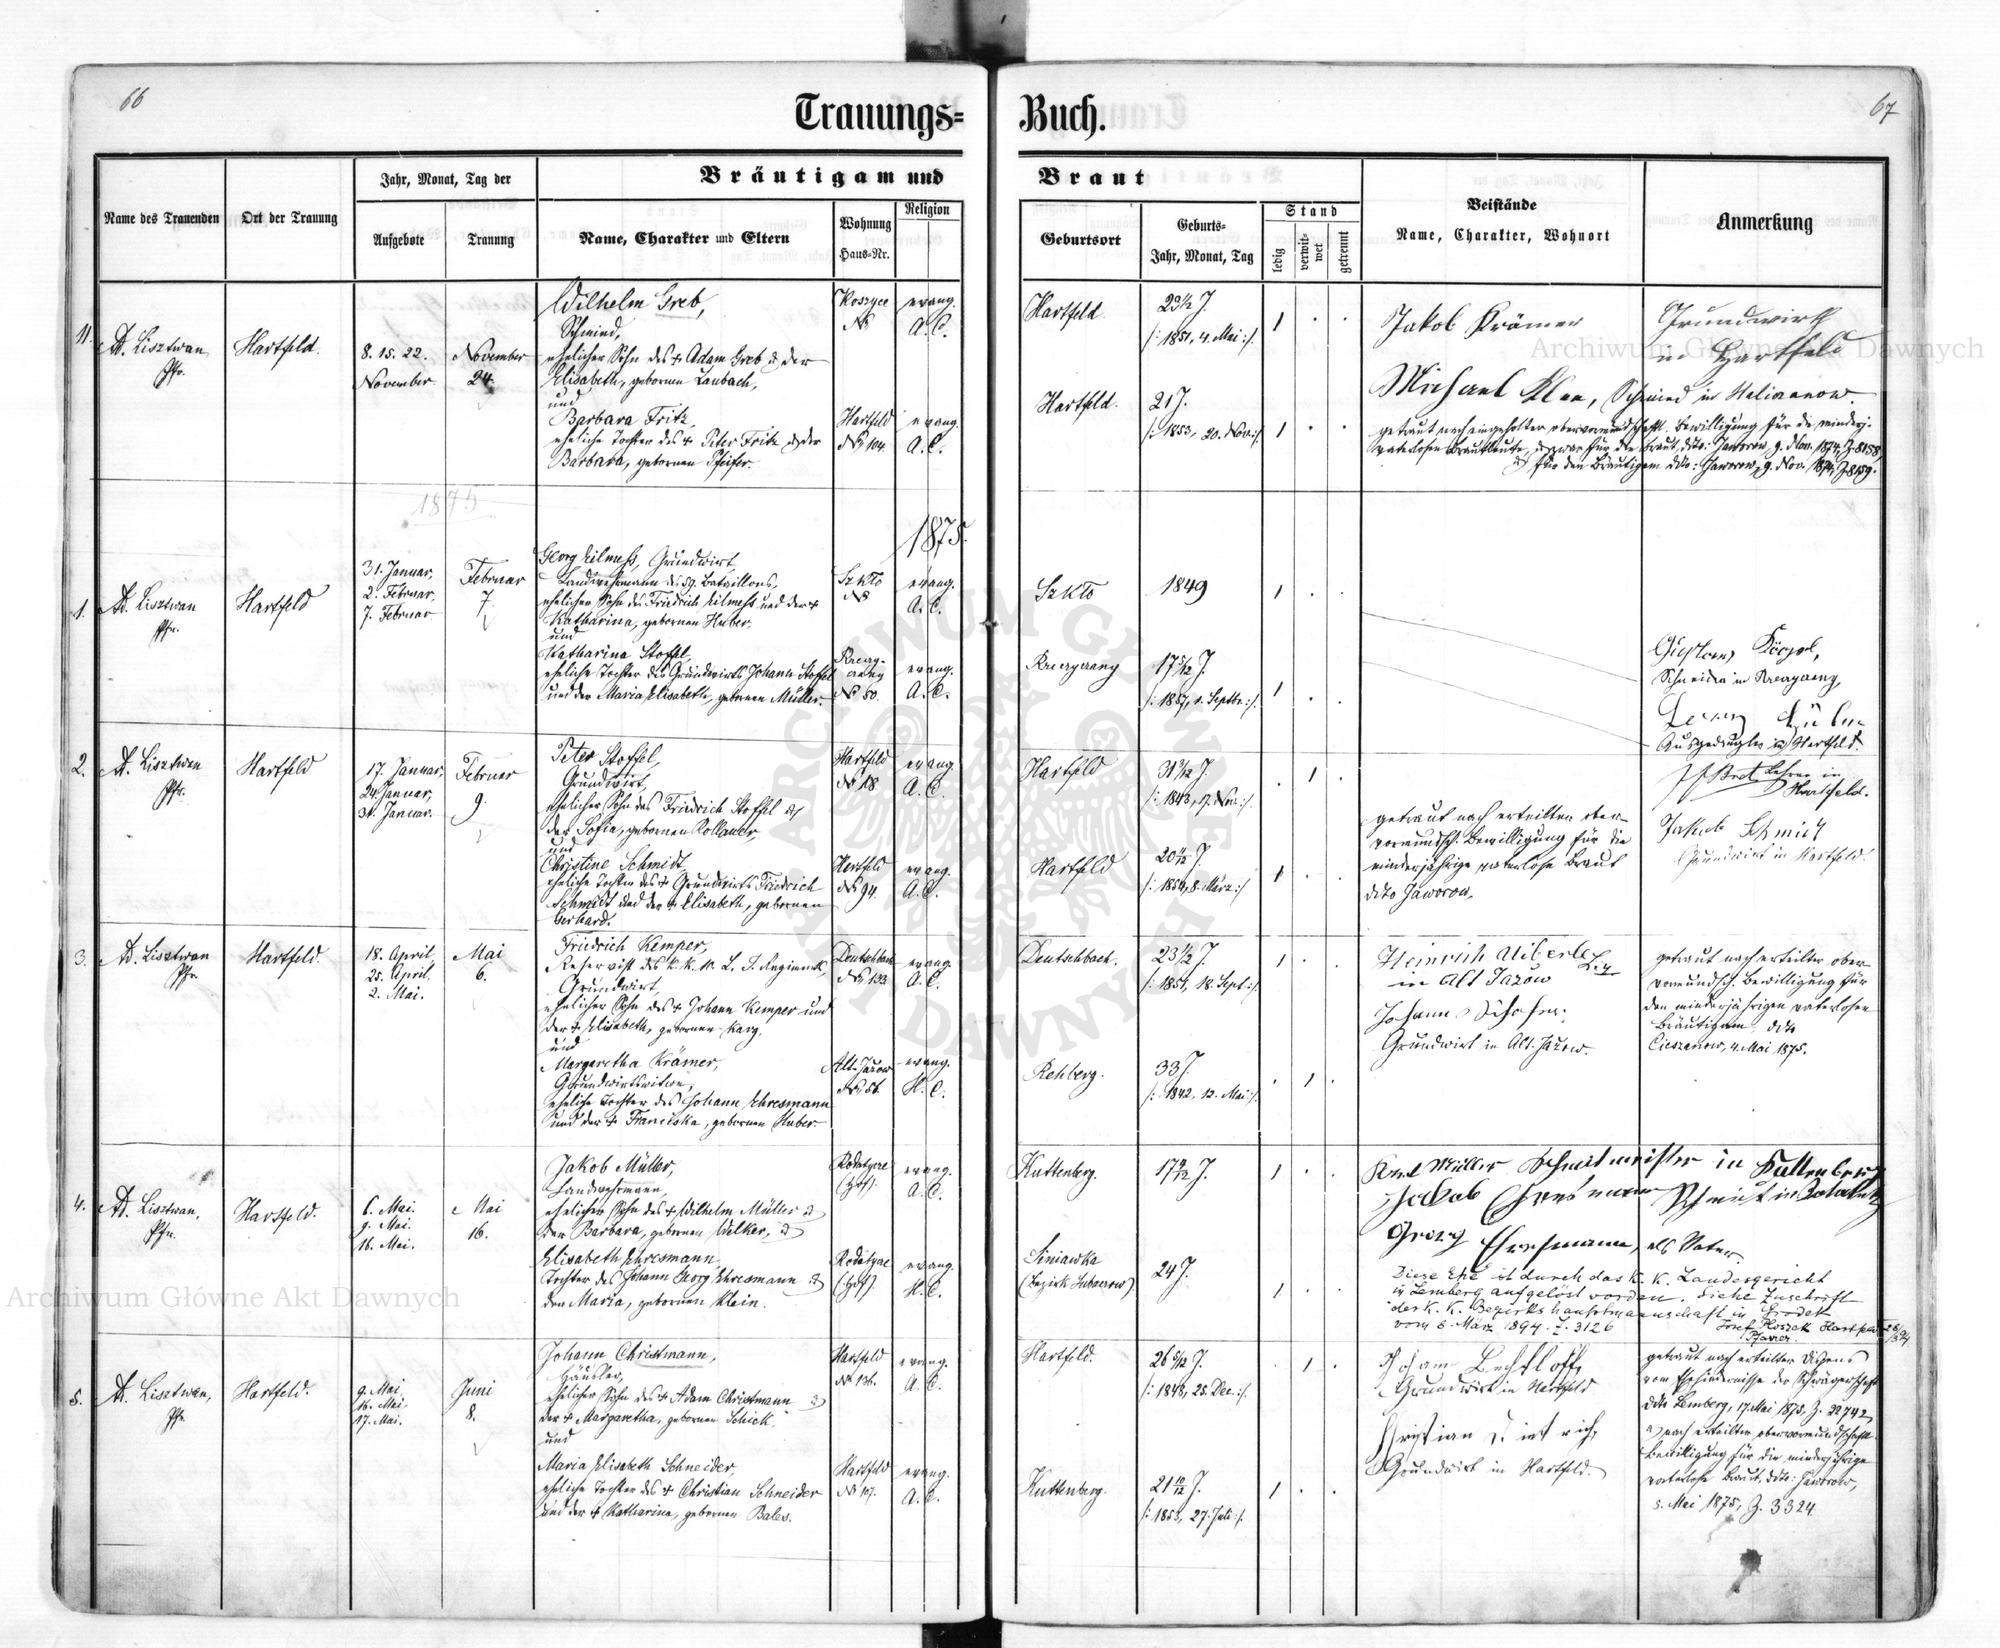 66
67
Trauungs=
Buch.
Name des Trauenden
Ort der Trauung
Jahr, Monat, Tag der
Aufgebote
Trauung
Bräutigam und
Braut
Name, Charakter und Eltern
Wohnung
Haus-Nr.
Religion
Geburtsort
Geburts=
Jahr, Monat, Tag
Stand
ledig
verwit-
wet
getrennt
Beistände
Name, Charakter, Wohnort
Anmerkung
11.
Ad. Lisztwan
Pfr.
Hartfeld.
8. 15. 22.
November
November
24.
Wilhelm Greb,
Schmied,
ehelicher Sohn des + Adam Greb & der
Elisabeth, gebornen Laubach,
und
Barbara Fritz,
eheliche Tochter des + Peter Fritz & der
Barbara, gebornen Pfeifer.
Koszyce
N
Hartfeld
N 104.
evang.
A. C.
evang.
A. C.
Hartfeld
23½ J.
/: 1851, 4. Mai :/.
1 . .
Hartfeld.
21 J.
/: 1853, 20. Nov. :/.
1 . .
Jakob Krämer
Grundwirth
in Hartfeld
Michael Klee, Schmied in
getraut nach eingeholter obervormundschaftl. Bewilligung für die minderj.
vaterlosen Brautleute, u. zwar für die Braut, ddto. Jaworow, 9. Nov. 1874, Z. 8158,
& für den Bräutigam ddto: Jaworow, 9. Nov. 1874, Z. 8159.
1875
1875.
1.
Ad. Lisztwan
Pfr.
Hartfeld
31. Januar,
2. Februar,
7. Februar
Februar
7.
Georg Eilmess, Grundwirt,
Landwehrmann des 59. Bataillons,
ehelicher Sohn des Friedrich Eilmess und der +
Katharina, gebornen Huber.
und
Katharina Stoffel,
eheliche Tochter des Grundwirts Johann Stoffel
und der Maria Elisabeth, gebornen Müller.
Szkło
N
N 50.
evang.
A. C.
evang.
A. C.
Szkło
1849
1 . .
17 5/12 J.
/: 1857, 1. Septbr. :/.
1 . .
Schneider in
Ausgedingler in Hartfeld.
2.
Ad. Lisztwan
Pfr.
Hartfeld
17. Januar,
24. Januar,
31. Januar.
Februar
9.
Peter Stoffel,
Grundwirt,
ehelicher Sohn des Friedrich Stoffel &
der Sofia, gebornen Kollauer,
und
Christine Schmidt,
eheliche Tochter des + Grundwirts Friedrich
Schmidt und der + Elisabeth, gebornen
Gerhard.
Hartfeld
N 18.
Hartfeld
N 94.
evang.
A. C.
evang.
A. C.
Hartfeld
31 3/12 J.
/: 1843, 17. Nov. :/.
. 1 .
Hartfeld
20 11/12 J.
/: 1854, 8. März :/
1 . .
getraut nach erteilter ober-
vormundsch. Bewilligung für die
minderjährige vaterlose Braut
ddto Jaworow.
Lehrer in
Hartfeld.
Jakob Schmidt
Grundwirt in Hartfeld.
3.
Ad. Lisztwan
Pfr.
Hartfeld.
18. April,
25. April.
2. Mai.
Mai
6.
Friedrich Kemper,
Reservist des k. k. 10. L. I. Regiments,
Grundwirt,
ehelicher Sohn des + Johann Kemper und
der + Elisabeth, gebornen Karg.
und
Margaretha Krämer,
Grundwirtswitwe,
eheliche Tochter des Johann Ehresmann
und der + Franciska, gebornen Huber.
Deutschbach
N 133.
Alt-Jazow
N 56.
evang.
A. C.
evang.
H. C.
Deutschbach.
23½ J.
/: 1851, 18. Sept. :/.
1 . .
Rehberg.
33 J.
/: 1842, 12. Mai :/.
. 1 .
Heinrich Uiberle
in Alt Jazow
Johann Schafer,
Grundwirt in Alt-Jazow.
getraut nach erteilter ober-
vormundsch. Bewilligung für
den minderjährigen vaterlosen
Bräutigam, ddto
Cieszanow, 4. Mai 1875.
4.
Ad. Lisztwan,
Pfr.
Hartfeld.
6. Mai.
9. Mai.
16. Mai.
Mai
16.
Jakob Müller,
Landwehrmann,
ehelicher Sohn des + Wilhelm Müller &
der Barbara, gebornen Welker, &
Elisabeth Ehresmann
Tochter des Johann Georg Ehresmann &
der Maria, gebornen Klein.
Rodatycze
(Hof).
Rodatycze
(Hof).
evang.
A. C.
evang.
H. C.
Kuttenberg.
J.
1 . .
Siniawka
24 J.
1 . .
Karl Müller Schmitmeister in Kuttenberg
Jakob Ehresmann Schmit in
Georg Ehresmann, als Vater
Diese Ehe ist durch das k. k. Landesgericht
in Lemberg aufgelöst worden. Siehe Zuschrift
der k. k. Bezirkshauptmannschaft in Grodek
vom 6. März 1894. Z. 3126
Josef Ploszek Hartfeld
Pfarrer.
5.
Ad. Lisztwan,
Pfr.
Hartfeld.
9. Mai,
16. Mai.
17. Mai.
Juni
8.
Johann Christmann,
Häusler,
ehelicher Sohn des + Adam Christmann &
der + Margaretha, gebornen Schick.
und
Maria Elisabeth Schneider,
eheliche Tochter des + Christian Schneider
und der + Katharina, gebornen Bales.
Hartfeld
N 136.
Hartfeld
N 107.
evang.
A. C.
evang.
A. C.
Hartfeld.
26 5/12 J.
/: 1848, 25. Dec. :/.
. 1 .
Kuttenberg.
21 10/12 J.
/: 1853, 27. Juli :/.
1 . .
Johann Bechtloff,
Grundwirt in Hartfeld
Christian Dietrich,
Grundwirt in Hartfeld.
getraut nach erteilter Dispens
vom Ehehindernisse der Schwägerschaft
ddto Lemberg, 17. Mai 1875, Z. 22742,
& nach erteilter obervormundschaftl.
Bewilligung für die minderjährige
vaterlose Braut, ddto: Jaworow,
5. Mai 1875, Z. 3324.
Archiwum Główne Akt Dawnych
Archiwum Główne Akt Dawnych
ARCHIWUM GŁÓWNE AKT DAWNYCH